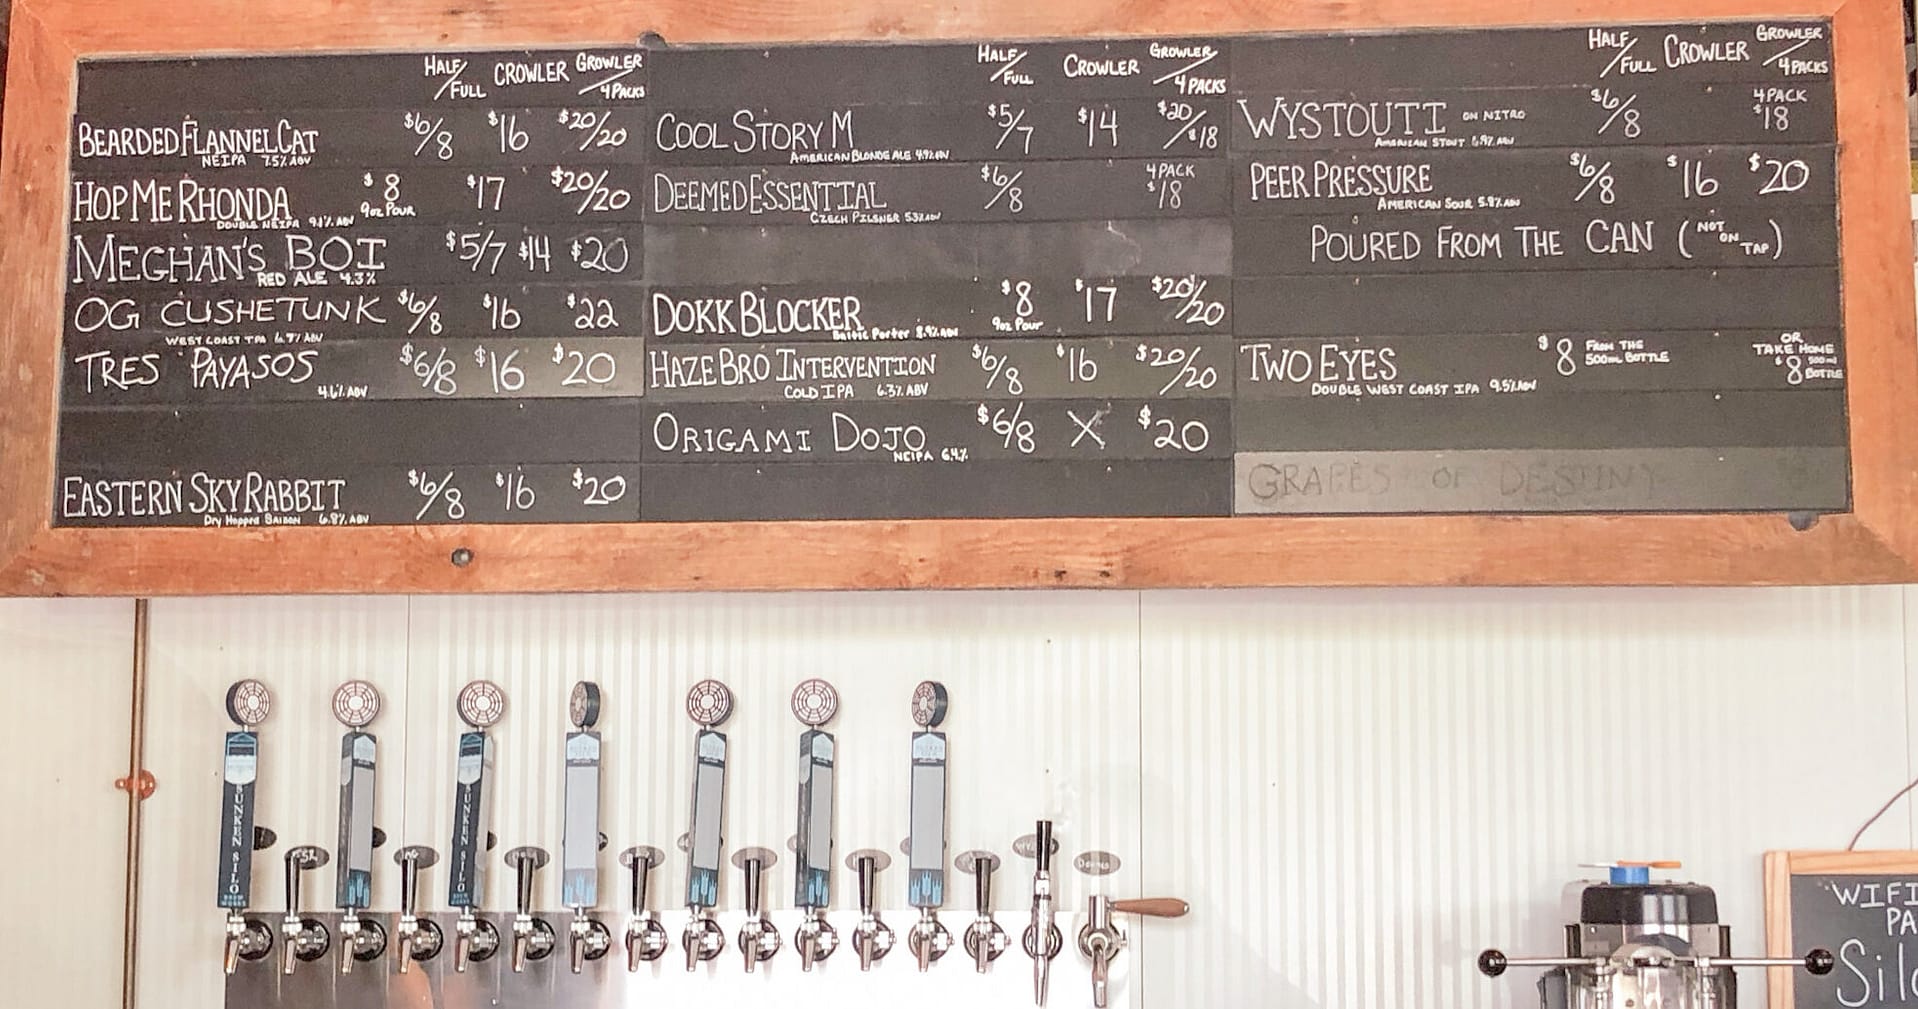 HALF/FULL CROWLER GROWLER/4PACKS
BEARDED FLANNEL CAT $6/8 $16 $20/20
NEIPA 7.5% ABV
HOP ME RHONDA $8 $17 $20/20
DOUBLE NEIPA 9.1% ABV 9oz POUR
MEGHAN'S BOI $5/7 $14 $20
RED ALE 4.3%
OG CUSHETUNK $6/8 $16 $22
WEST COAST IPA 6.7% ABV
TRES PAYASOS $6/8 $16 $20
4.6% ABV
EASTERN SKY RABBIT $6/8 $16 $20
Dry Hopped SAISON 6.8% ABV
HALF/FULL CROWLER GROWLER/4PACKS
COOL STORY M $5/7 $14 $20/$18
AMERICAN BLONDE ALE 4.9% ABV
DEEMED ESSENTIAL $6/8 4PACK $18
CZECH PILSNER 5.3% ABV
DOKK BLOCKER $8 $17 $20/20
Baltic Porter 8.9% ABV 9oz Pour
HAZE BRO INTERVENTION $6/8 $16 $20/20
COLD IPA 6.3% ABV
ORIGAMI DOJO $6/8 X $20
NEIPA 6.4%
HALF/FULL CROWLER GROWLER/4PACKS
WYSTOUTI ON NITRO $6/8 4PACK $18
AMERICAN STOUT 6.9% ABV
PEER PRESSURE $6/8 $16 $20
AMERICAN SOUR 5.8% ABV
POURED FROM THE CAN (NOT ON TAP)
TWO EYES $8 FROM THE 500mL BOTTLE OR TAKE HOME $8 500ml BOTTLE
DOUBLE WEST COAST IPA 9.5% ABV
GRAPES OF DESTINY
SUNKEN SILO
SUNKEN SILO
WIFI
PA
Silo